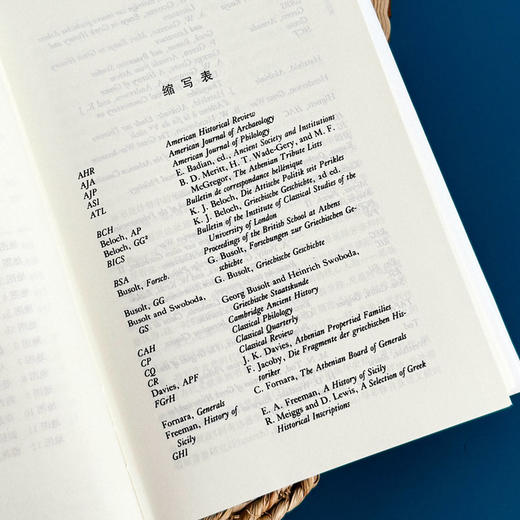 缩写表
AHR American Historical Review
AJA American Journal of Archaeology
AJP American Journal of Philology
ASI E. Badian, ed., Ancient Society and Institutions
ATL B. D. Meritt, H. T. Wade-Gery, and M. F.
McGregor, The Athenian Tribute Lists
BCH Bulletin de correspondance hellénique
Beloch, AP K. J. Beloch, Die Attische Politik seit Perikles
Beloch, GG² K. J. Beloch, Griechische Geschichte, 2d ed.
BICS Bulletin of the Institute of Classical Studies of the
University of London
BSA Proceedings of the British School at Athens
Busolt, Forsch. G. Busolt, Forschungen zur Griechischen Ge-
schichte
Busolt, GG G. Busolt, Griechische Geschichte
Busolt and Swoboda, Georg Busolt and Heinrich Swoboda,
GS Griechische Staatskunde
CAH Cambridge Ancient History
CP Classical Philology
CQ Classical Quarterly
CR Classical Review
Davies, APF J. K. Davies, Athenian Propertied Families
FGrH F. Jacoby, Die Fragmente der griechischen His-
toriker
Fornara, Generals C. Fornara, The Athenian Board of Generals
Freeman, History of E. A. Freeman, A History of Sicily
Sicily
GHI R. Meiggs and D. Lewis, A Selection of Greek
Historical Inscriptions